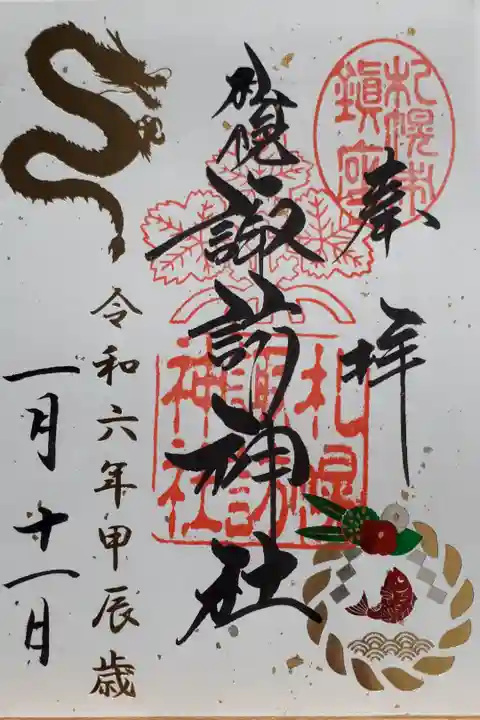 奉拝
札幌市
鎮座
札幌
諏訪神社
札幌
諏訪
神社
令和六年甲辰歳
一月十一日